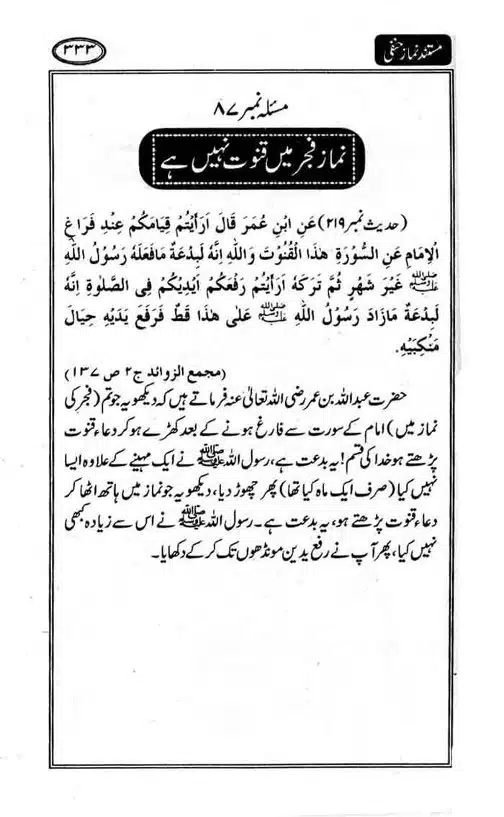 مستند نماز حنفی
۳۳۳
مسئلہ نمبر ۸۷
نماز فجر میں قنوت نہیں ہے
(حدیث نمبر ۲۱۹) عَنِ ابْنِ عُمَرَ قَالَ اَرَأَيْتُمْ قِيَامَكُمْ عِنْدِ فَرَاغِ
الْاِمَامِ عَنِ السُّوْرَةِ هٰذَا الْقُنُوْتَ وَاللّٰهِ اِنَّهُ لَبِدْعَةٌ مَافَعَلَهُ رَسُوْلُ اللّٰهِ
ﷺ غَيْرَ شَهْرٍ ثُمَّ تَرَكَهُ اَرَأَيْتُمْ رَفْعَكُمْ اَيْدِيْكُمْ فِى الصَّلٰوةِ اِنَّهُ
لَبِدْعَةٌ مَازَادَ رَسُوْلُ اللّٰهِ ﷺ عَلٰى هٰذَا قَطُّ فَرَفَعَ يَدَيْهِ حِيَالَ
مَنْكِبَيْهِ.
(مجمع الزوائد ج۲ ص ۱۳۷)
حضرت عبداللہ بن عمر رضی اللہ تعالیٰ عنہ فرماتے ہیں کہ دیکھو یہ جو تم (فجر کی
نماز میں) امام کے سورت سے فارغ ہونے کے بعد کھڑے ہو کر دعاء قنوت
پڑھتے ہو خدا کی قسم! یہ بدعت ہے، رسول اللہ ﷺ نے ایک مہینے کے علاوہ ایسا
نہیں کیا (صرف ایک ماہ کیا تھا) پھر چھوڑ دیا، دیکھو یہ جو نماز میں ہاتھ اٹھا کر
دعاء قنوت پڑھتے ہو، یہ بدعت ہے۔ رسول اللہ ﷺ نے اس سے زیادہ کبھی
نہیں کیا، پھر آپ نے رفع یدین مونڈھوں تک کر کے دکھایا۔